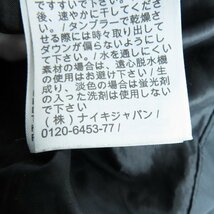 すのでおすすめできません。
後、速やかに干してくださ
い。/タンブラーで乾燥さ
せる際には時々取り出して
ダウンが偏らないようにし
て下さい。/水を通しにくい
素材の場合は、遠心脱水機
の使用はお避け下さい。/生
成り、淡色の場合は蛍光剤
の入った洗剤は使用しない
で下さい。/
(株)ナイキジャパン/
0120-6453-77/